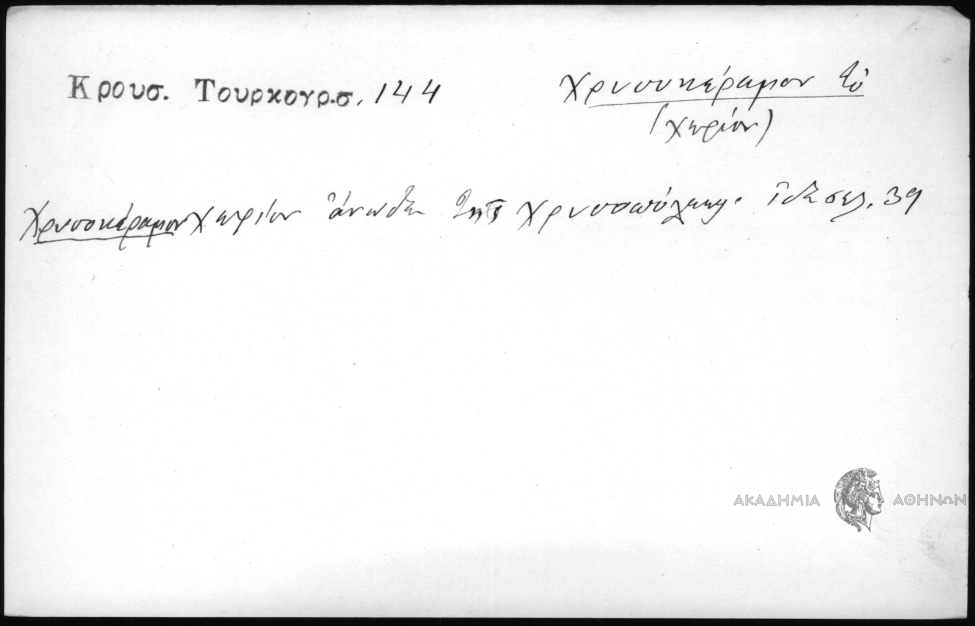 Κρουσ. Τουρκογρ.σ. 144
Χρυσοκέραμον τὸ
(χωρίον)
Χρυσοκέραμον χωρίον ἄνωθεν τῆς Χρυσοπόλεως. ἰδὲ σελ. 39
ΑΚΑΔΗΜΙΑ ΑΘΗΝΩΝ